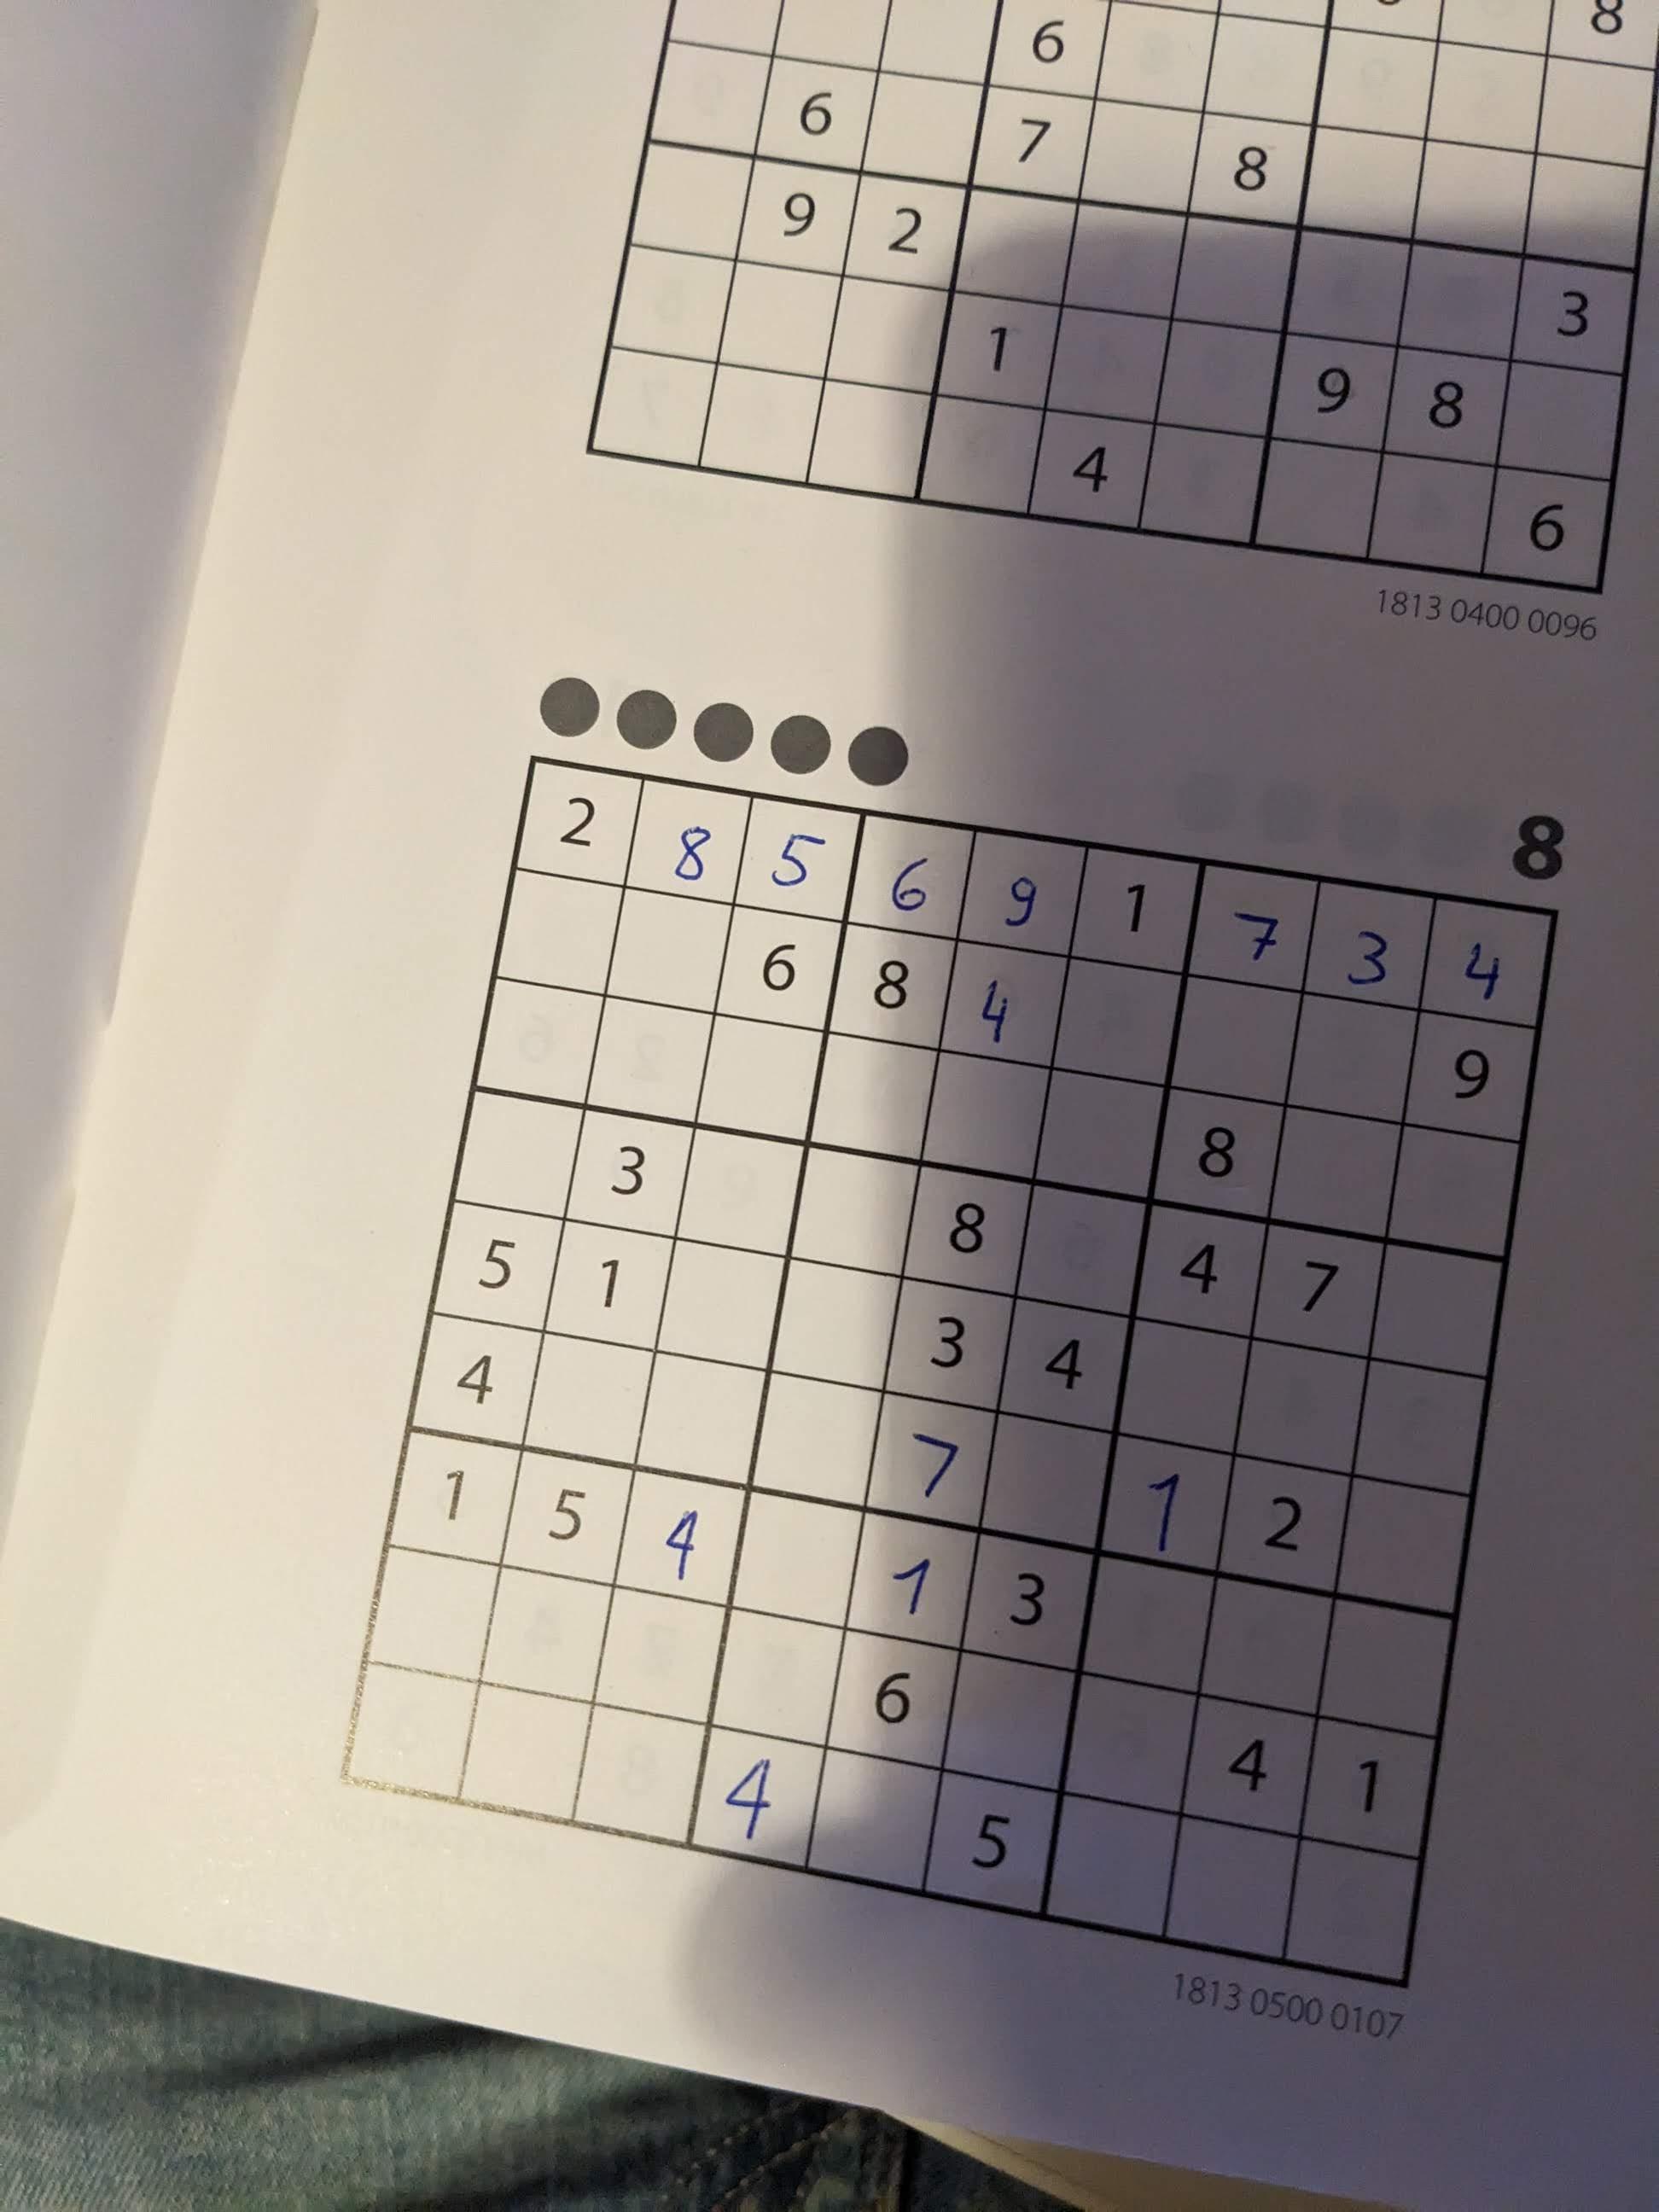 8
6
6 7 8
9 2 3
1 9 8
4 6
1813 0400 0096
8
2 8 5 6 9 1 7 3 4
6 8 4 9
8
3 8 4 7
5 1 3 4
4 7 1 2
1 5 4 1 3
6 4 1
4 5
1813 0500 0107